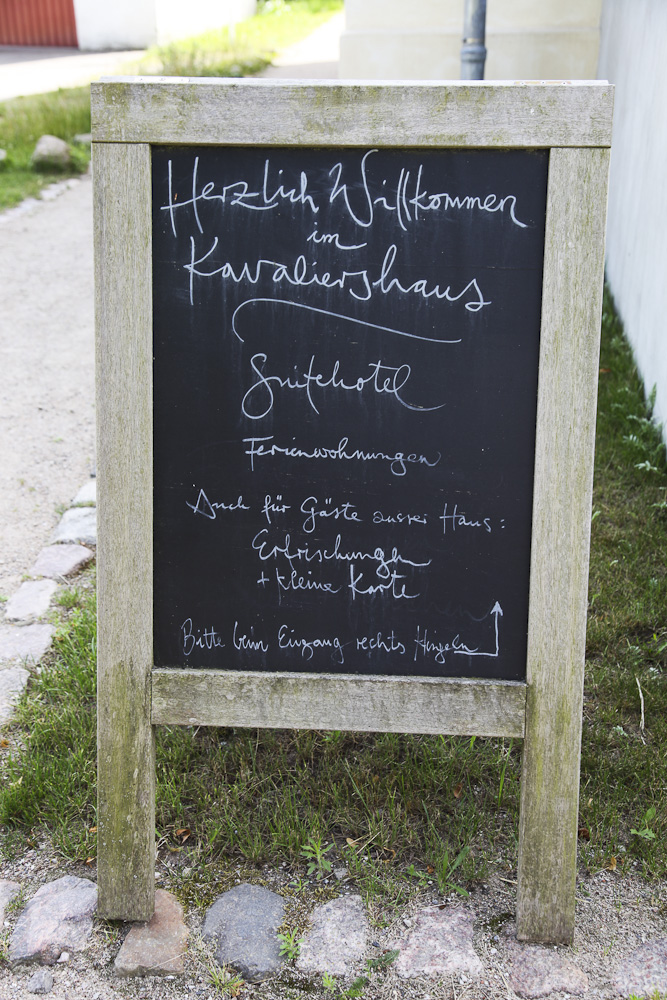 Herzlich Willkommen
im
Kavaliershaus
Suitehotel
Ferienwohnungen
Auch für Gäste ausser Haus:
Erfrischungen
+ kleine Karte
Bitte beim Eingang rechts klingeln